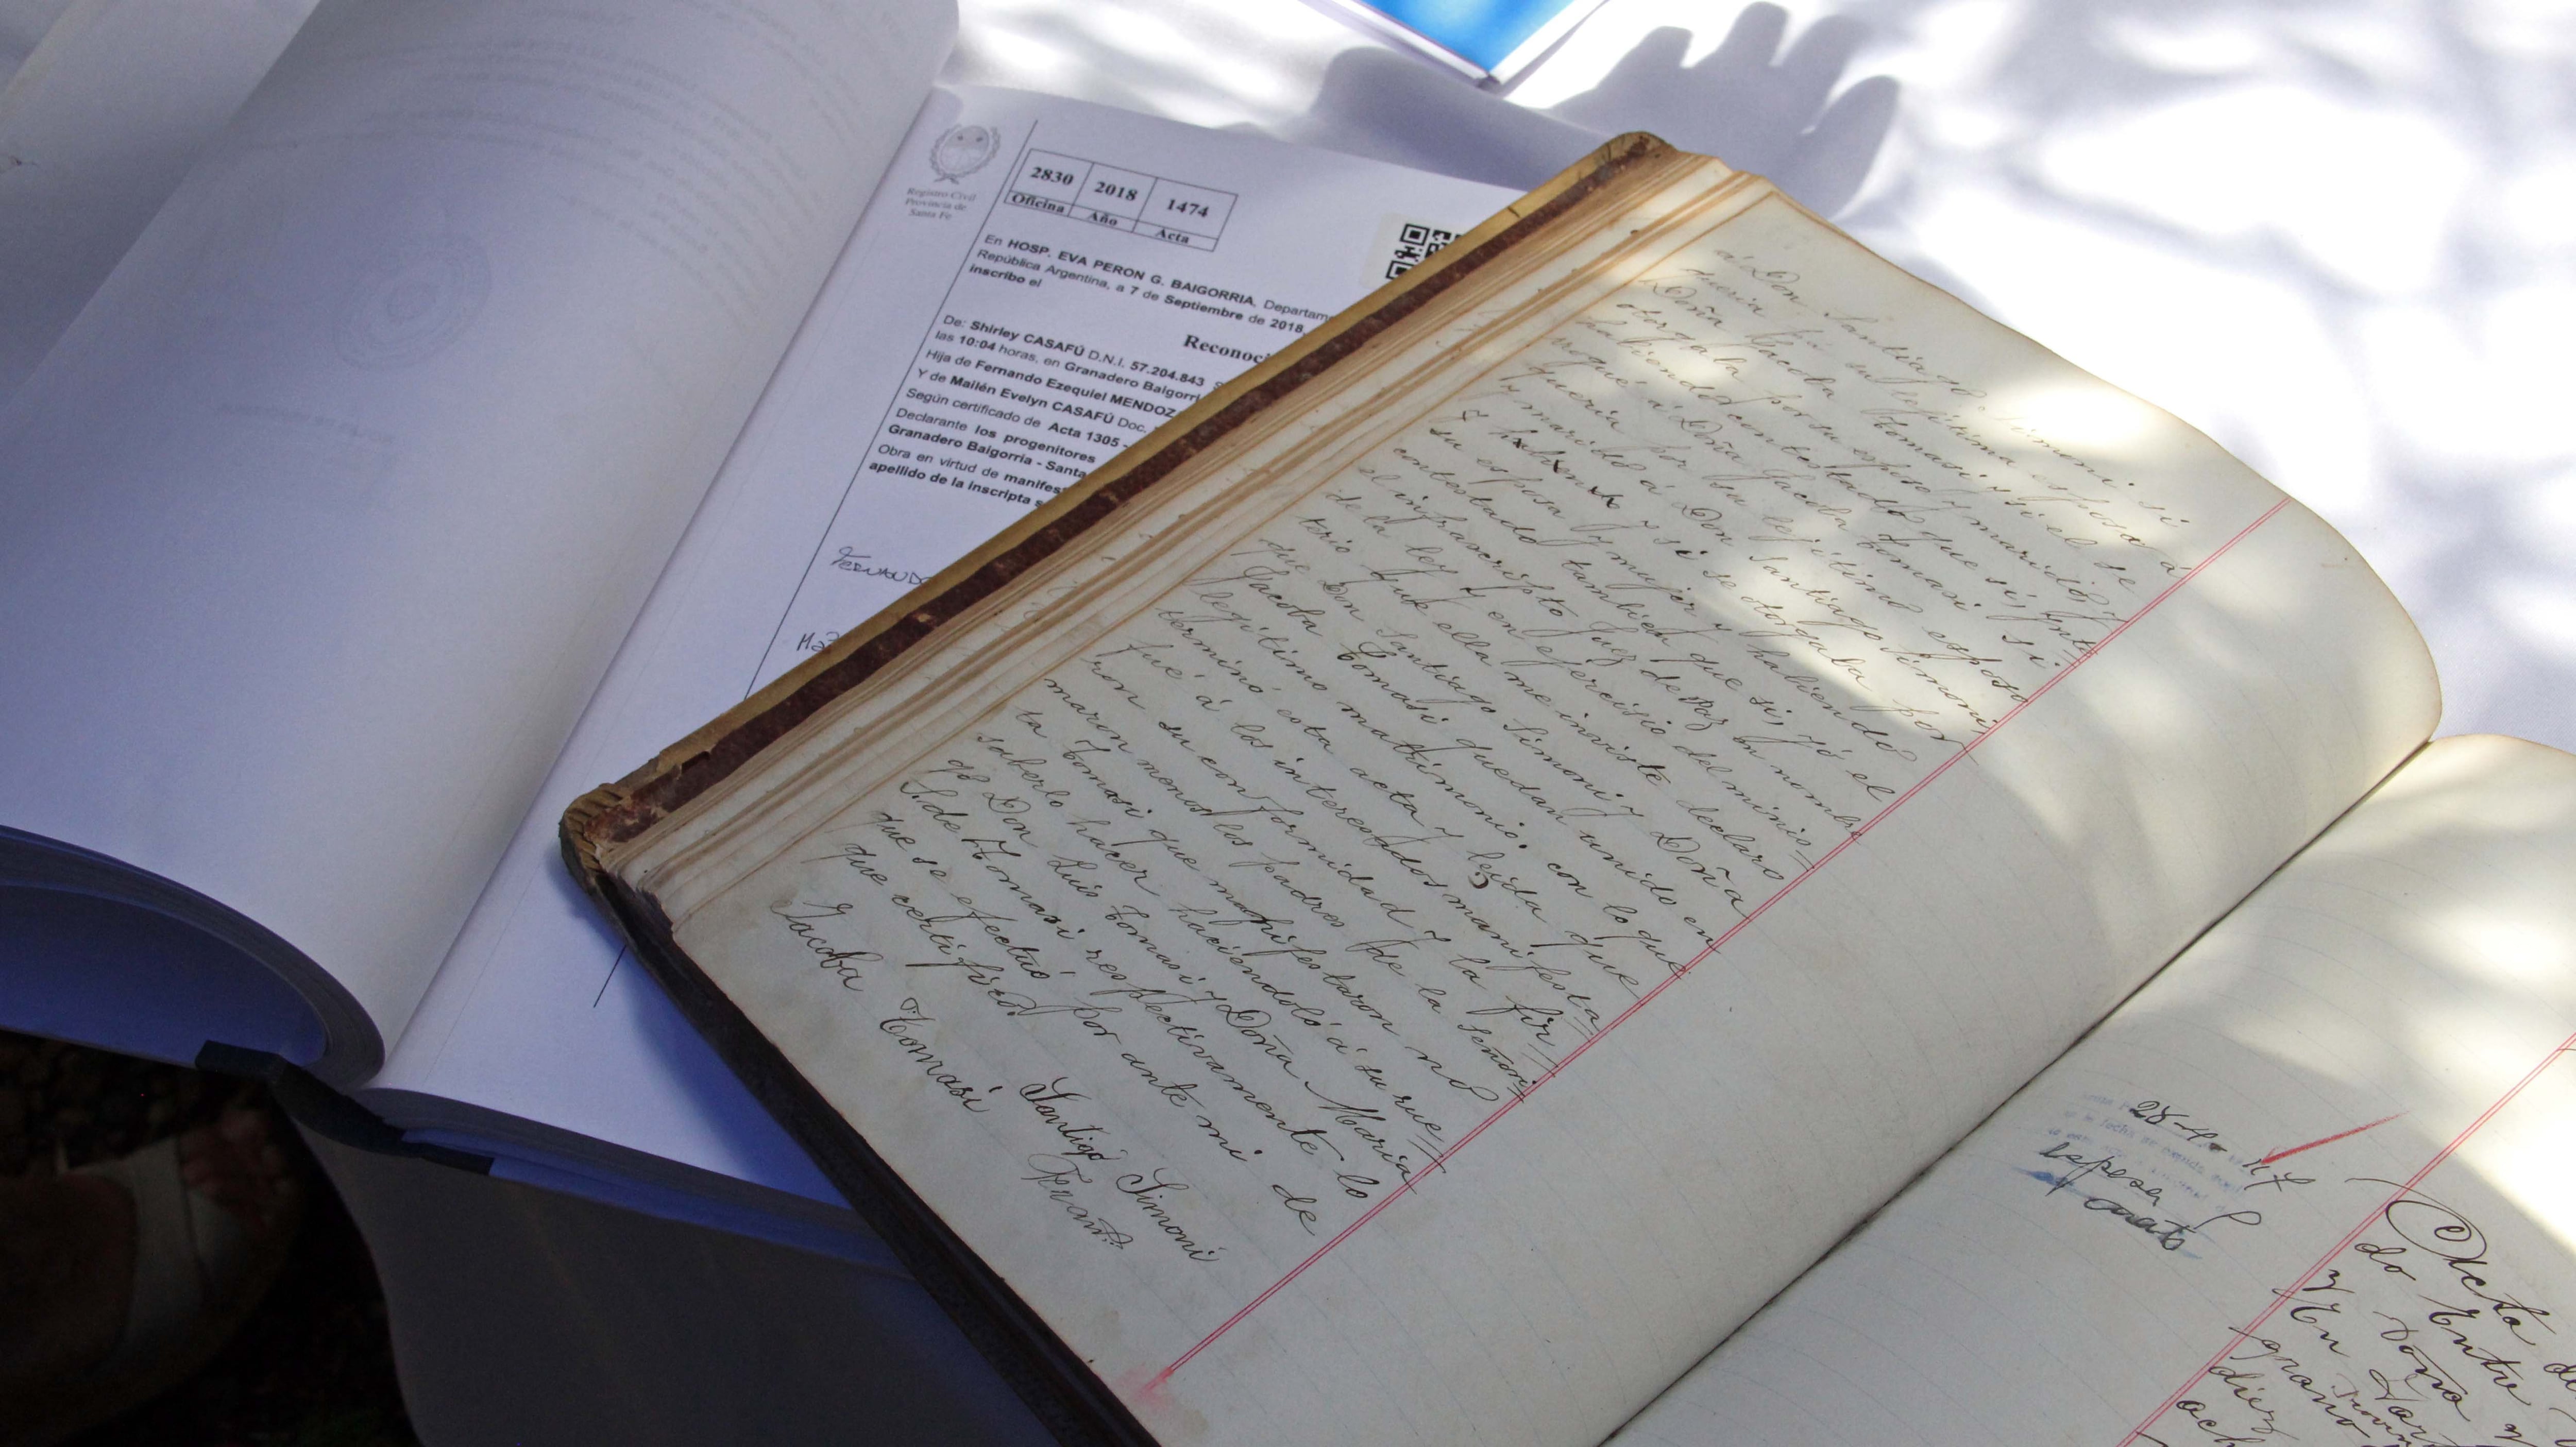 Registro Civil
Provincia de
Santa Fe
2830 2018 1474
Oficina Año Acta
En HOSP. EVA PERON G. BAIGORRIA, Departam
República Argentina, a 7 de Septiembre de 2018
inscribo el
Reconoci
De: Shirley CASAFÚ D.N.I. 57.204.843
las 10:04 horas, en Granadero Baigorri
Hija de Fernando Ezequiel MENDOZ
Y de Mailén Evelyn CASAFÚ Doc.
Según certificado de Acta 1305 -
Declarante los progenitores
Granadero Baigorria - Santa
Obra en virtud de manifes
apellido de la inscripta s
FERNANDO
Ma
á Don Santiago Simoni si
queria por su lejítima esposa á
Doña Jacoba Tomasi y si él se
otorgaba por su esposo y marido, y
habiendo contestado que sí,
á Doña Jacoba Tomasi si
queria por su lejitimo esposo
y marido á Don Santiago Simoni,
y si se otorgaba por
su esposa y mujer y habiendo
contestado tambien que si, yó el
infrascripto Juez de Paz en nombre
de la ley y en ejercisio del minis-
terio que ella me inviste declaro
que Don Santiago Simoni y Doña
Jacoba Tomasi quedan unido en
legítimo matrimonio. con lo que
terminó esta acta y leida que
fué á los interesados manifesta-
ron su conformidad y la fir-
maron menos los padres de la señori-
ta Tomasi que manifestaron no
saberlo hacer haciendolo á su rue-
gó Don Luis Tomasi y Doña Maria
S. de Tomasi respectivamente lo
que se efectuó por ante mi de
que certifico.
Jacoba Tomasi
Santigo Simoni
28-4-
Acta de
do Entre
y Doña
En
diez
och